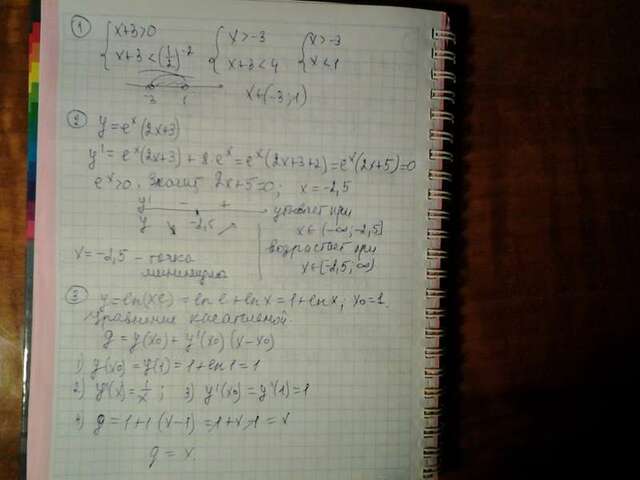 ① { x+3>0 { x>-3 { x>-3
x+3<(1/2)^-2 x+3<4 x<1
-3 1 x∈(-3;1)
② y=e^x(2x+3)
y'=e^x(2x+3)+2·e^x=e^x(2x+3+2)=e^x(2x+5)=0
e^x>0. Значит 2x+5=0; x=-2,5
y' - + убывает при
y ↘ -2,5 ↗ x∈(-∞;-2,5]
x=-2,5 - точка минимума
возрастает при
x∈[-2,5;∞)
③ y=ln(xe)=ln e+ln x=1+ln x; x0=1.
Уравнение касательной.
y=y(x0)+y'(x0)(x-x0)
1) y(x0)=y(1)=1+ln1=1
2) y'(x)=1/x; 3) y'(x0)=y'(1)=1
4) y=1+1(x-1)=1+x-1=x
y=x.